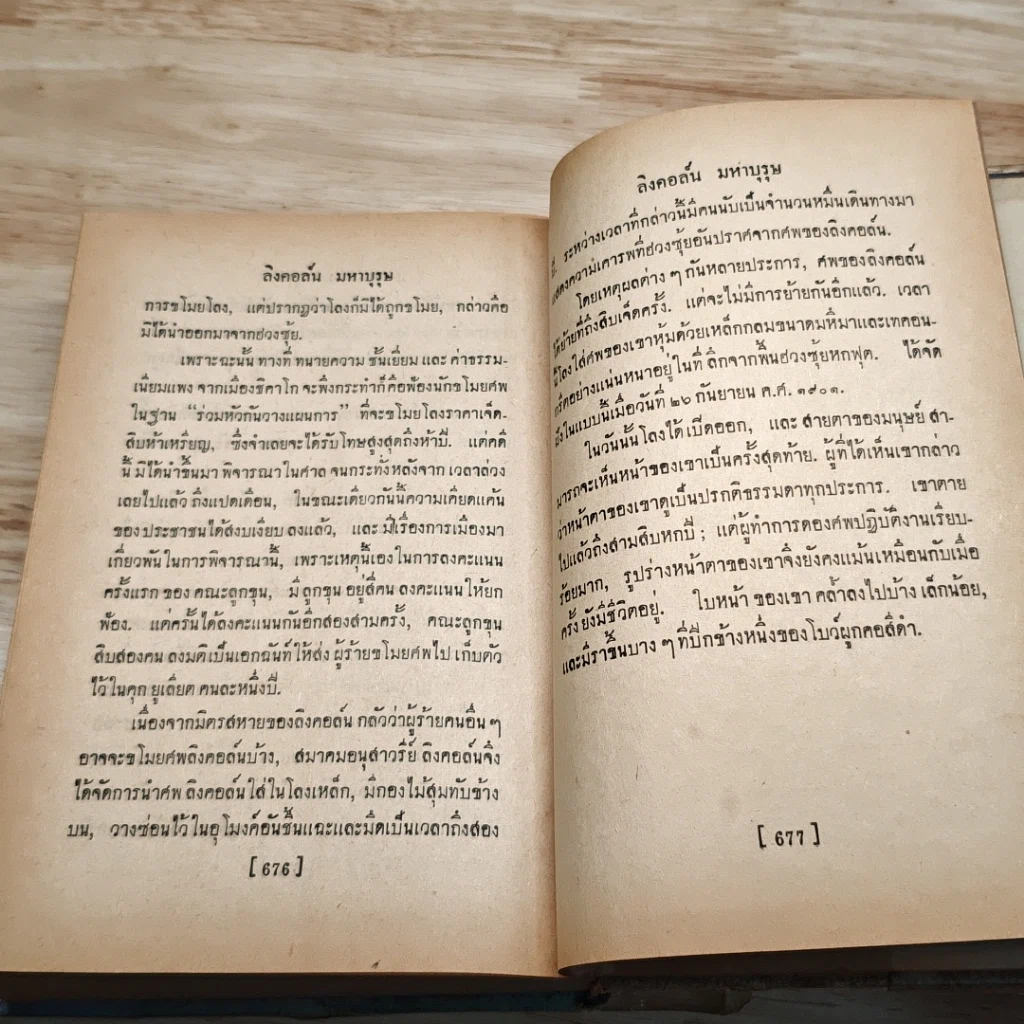 ลิงคอล์น มหาบุรุษ
การขโมยโลง, แต่ปรากฏว่าโลงก็มิได้ถูกขโมย, กล่าวคือ
มิได้นำออกมาจากฮวงซุ้ย.
เพราะฉะนั้น ทางที่ ทนายความ ชั้นเยี่ยม และ ค่าธรรม-
เนียมแพง จากเมืองชิคาโก จะพึงกระทำก็คือฟ้องนักขโมยศพ
ในฐาน “ร่วมหัวกันวางแผนการ” ที่จะขโมยโลงราคาเจ็ด-
สิบห้าเหรียญ, ซึ่งจำเลยจะได้รับโทษสูงสุดถึงห้าปี. แต่คดี
นี้ มิได้นำขึ้นมา พิจารณาในศาล จนกระทั่งหลังจาก เวลาล่วง
เลยไปแล้ว ถึงแปดเดือน, ในขณะเดียวกันนี้ความเคียดแค้น
ของ ประชาชนได้สงบเงียบ ลงแล้ว, และ มีเรื่องการเมืองมา
เกี่ยวพันในการพิจารณานี้, เพราะเหตุนี้เองในการลงคะแนน
ครั้งแรก ของ คณะลูกขุน, มี ลูกขุน อยู่สี่คน ลงคะแนน ให้ยก
ฟ้อง. แต่ครั้นได้ลงคะแนนกันอีกสองสามครั้ง, คณะลูกขุน
สิบสองคน ลงมติเป็นเอกฉันท์ ให้ส่ง ผู้ร้ายขโมยศพไป เก็บตัว
ไว้ในคุก ยูเลียต คนละหนึ่งปี.
เนื่องจากมิตรสหายของลิงคอล์น กลัวว่าผู้ร้ายคนอื่น ๆ
อาจจะขโมยศพลิงคอล์นบ้าง, สมาคมอนุสาวรีย์ ลิงคอล์นจึง
ได้จัดการนำศพ ลิงคอล์น ใส่ในโลงเหล็ก, มีกองไม้สุมทับข้าง
บน, วางซ่อนไว้ ในอุโมงค์อันชื้นแฉะและมืดเป็นเวลาถึงสอง
[ 676 ]
ลิงคอล์น มหาบุรุษ
ปี. ระหว่างเวลาที่กล่าวนี้มีคนนับเป็นจำนวนหมื่นเดินทางมา
แสดงความเคารพที่ฮวงซุ้ยอันปราศจากศพของลิงคอล์น.
โดยเหตุผลต่าง ๆ กันหลายประการ, ศพของลิงคอล์น
ได้ย้ายที่ถึงสิบเจ็ดครั้ง. แต่จะไม่มีการย้ายกันอีกแล้ว. เวลา
นี้โลงใส่ศพของเขาหุ้มด้วยเหล็กกลมขนาดมหึมาและเทคอน-
กรีตอย่างแน่นหนาอยู่ในที่ ลึกจากพื้นฮวงซุ้ยหกฟุต. ได้จัด
ฝังในแบบนี้เมื่อวันที่ ๒๖ กันยายน ค.ศ. ๑๙๐๑.
ในวันนั้นโลงได้ เปิดออก, และ สายตาของมนุษย์ สา-
มารถจะเห็นหน้าของเขาเป็นครั้งสุดท้าย. ผู้ที่ได้เห็นเขากล่าว
ว่าหน้าตาของเขาดูเป็นปรกติธรรมดาทุกประการ. เขาตาย
ไปแล้วถึงสามสิบหกปี ; แต่ผู้ทำการดองศพปฏิบัติงานเรียบ-
ร้อยมาก, รูปร่างหน้าตาของเขาจึงยังคงแม้นเหมือนกับเมื่อ
ครั้ง ยังมีชีวิตอยู่. ใบหน้า ของเขา คล้ำลงไปบ้าง เล็กน้อย,
และมีราขึ้นบาง ๆ ที่ปีกข้างหนึ่งของโบว์ผูกคอสีดำ.
[ 677 ]